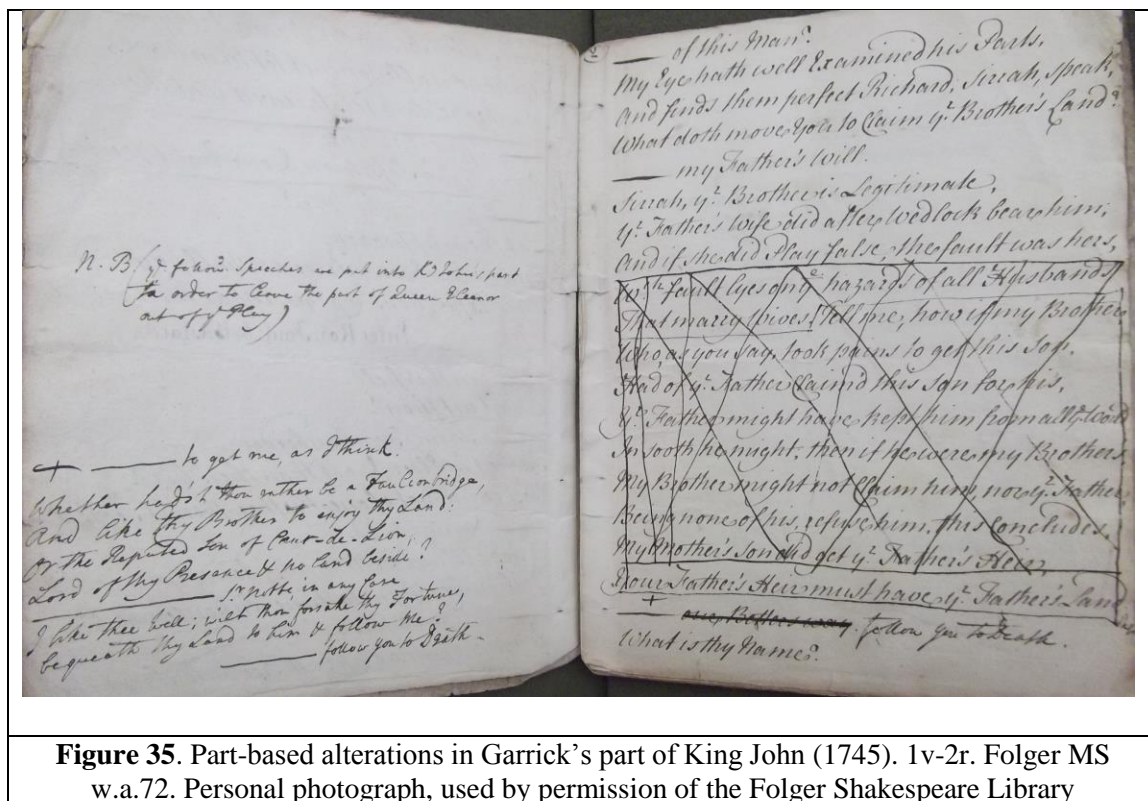 N. B (ye follow.g Speeches are put into K.g John's part
to order to leave the part of Queen Eleanor
out of ye Play)
+ ——— to get me, as I think.
Whether had'st thou rather be a Faulconbridge,
And like thy Brother to enjoy thy Land:
Or the Reputed Son of Cœur-de-Lion,
Lord of thy Presence & no land beside?
——— Sr Robt. in any Case
I like thee well; wilt thou forsake thy Fortune,
bequeath thy Land to him & follow Me?
——— follow you to Death.
2
——— of this Man?
My Eye hath well Examined his Parts,
And finds them perfect Richard. Sirrah, speak,
What doth move You to Claim yr. Brother's Land?
——— my Father's Will.
Sirrah, yr. Brother is Legitimate,
yr. Father's Wife did after Wedlock bear him;
And if she did Play false, the fault was hers,
Wch. fault lyes on ye hazards of all Husbands
That marry Wives. Tell me, how if my Brother
Who, as you say, took pains to get this Son,
Had of yr. Father Claim'd this son for his,
yr. Father might have kept him from all ye World
In sooth he might; then if he were my Brothers
My Brother might not Claim him, nor yr. Father
Being none of his, refuse him. this concludes.
My Mother's son did get yr. Father's Heir,
Your Father's Heir must have yr. Father's Land
+ ——— our Betters way. follow you to Death.
What is thy Name?
Figure 35. Part-based alterations in Garrick's part of King John (1745). 1v-2r. Folger MS
w.a.72. Personal photograph, used by permission of the Folger Shakespeare Library